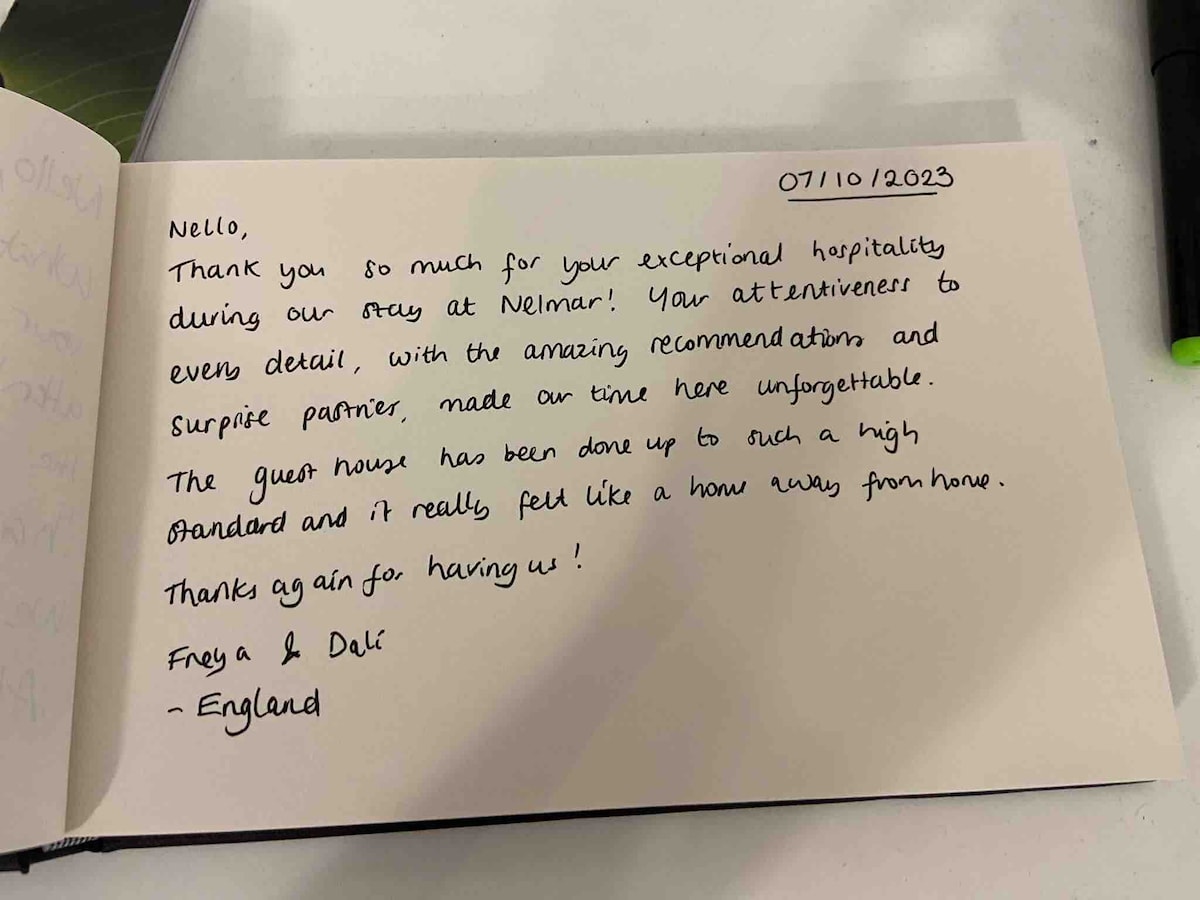 07/10/2023
Nello,
Thank you so much for your exceptional hospitality
during our stay at Nelmar! Your attentiveness to
every detail, with the amazing recommendations and
surprise pastries, made our time here unforgettable.
The guest house has been done up to such a high
standard and it really felt like a home away from home.
Thanks again for having us!
Freya & Dali
- England